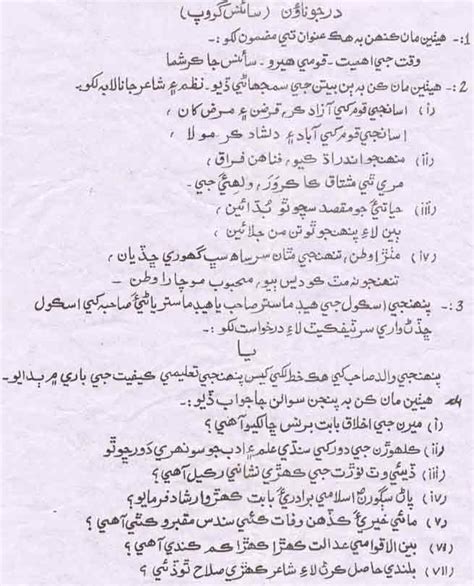 درجو ناؤن (سائنس گروپ)
1:- هيٺين مان ڪنهن به هڪ عنوان تي مضمون لکو:-
وقت جي اهميت - قومي هيرو - سائنس جا ڪرشما
2:- هيٺين مان ڪن به ٻن بيتن جي سمجهاڻي ڏيو - نظم ۽ شاعر جا نالا به لکو.
(i) اسانجي قوم کي آزاد ڪر، قرض ۽ مرض کان،
اسانجي قوم کي آباد ۽ دلشاد ڪر مولا،
(ii) منهنجو اندر اڌ ڪيو، فناهن فراق،
مري ٿي مشتاق ڪا ڪرور، ولهيءَ جي.
(iii) حياتيءَ جو مقصد سچو ٿو ٻڌائين،
ٻين لاءِ پنهنجو ٿو تن من جلائين،
(iv) منڙا وطن، تنهنجي مٿان سر ساھ سڀ گهوري ڇڏيان،
تنهنجو نه مٽ ڪو ديس ٻيو، محبوب موچارا وطن -
3:- پنهنجي اسڪول جي هيڊ ماستر صاحب يا هيڊ ماسترياڻي صاحبه کي اسڪول
ڇڏڻ واري سرٽيفڪيٽ لاءِ درخواست لکو:-
يا
پنهنجي والد صاحب کي هڪ خط لکي کيس پنهنجي تعليمي ڪيفيت جي باري ۾ ٻڌايو-
4 هيٺين مان ڪن به پنجن سوالن جا جواب ڏيو:-
(i) ميرن جي اخلاق بابت برنس ڇا لکيو آهي؟
(ii) ڪلهوڙن جي دور کي سنڌي علم ۽ ادب جو سونهري دور ڇو ٿو
(iii) ڏيئي وٽ نوڙت جي ڪهڙي نشاني رکيل آهي؟
(iv) پاڻ سڳورن اسلامي برادريءَ بابت ڪهڙو ارشاد فرمايو؟
(v) مائي خيري ڪڏهن وفات ڪئي سندس مقبرو ڪٿي آهي؟
(vi) بين الاقوامي عدالت ڪهڙا ڪهڙا ڪم ڪندي آهي؟
(vii) بلندي حاصل ڪرڻ لاءِ شاعر ڪهڙي صلاح ٿو ڏئي؟